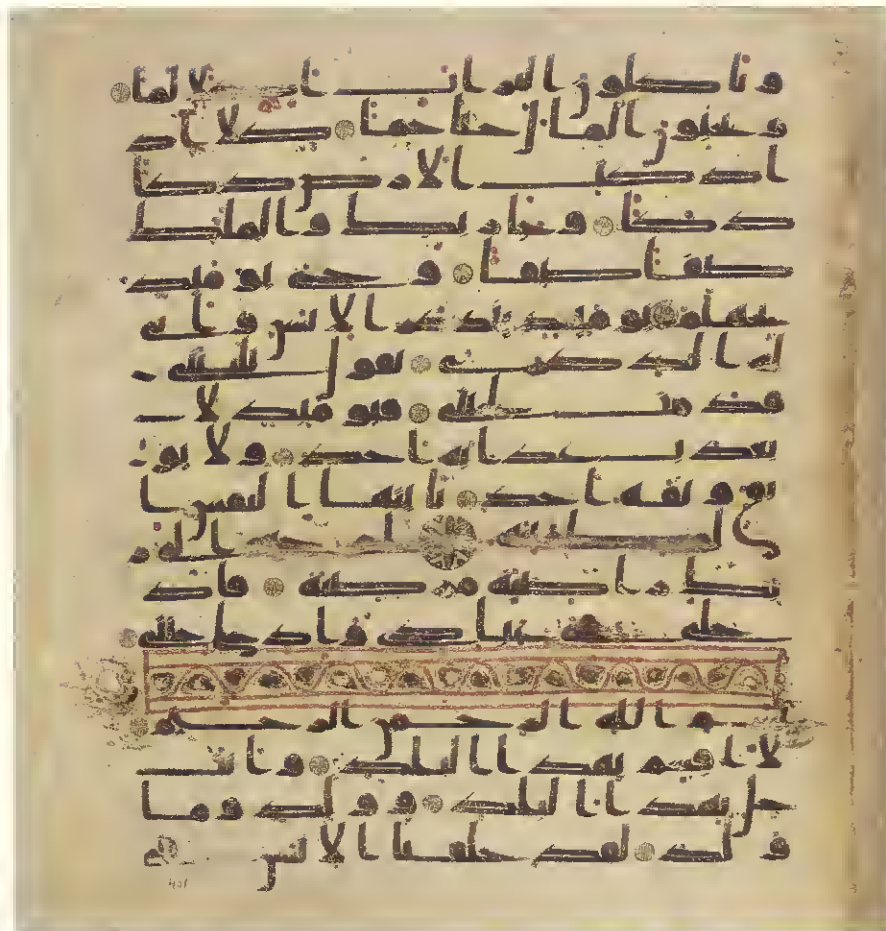 وتاكلون التراث اكلا لما
وتحبون المال حبا جما كلا اذ
ا دكت الارض دكا
دكا وجا ربك والملك
صفا صفا وجى يومئذ
بجهنم يومئذ يتذكر الانسن وانى
له الذكرى يقول يليتنى
قدمت لحياتى فيومئذ لا
يعذب عذابه احد ولا يو
ثق وثاقه احد يايتها النفس ا
لمطمئنة ارجعى الى ر
بك راضية مرضية فاد
خلى فى عبادى وادخلى جنتى
بسم الله الرحمن الرحيم
لا اقسم بهذا البلد وانت
حل بهذا البلد ووالد وما
ولد لقد خلقنا الانسن فى